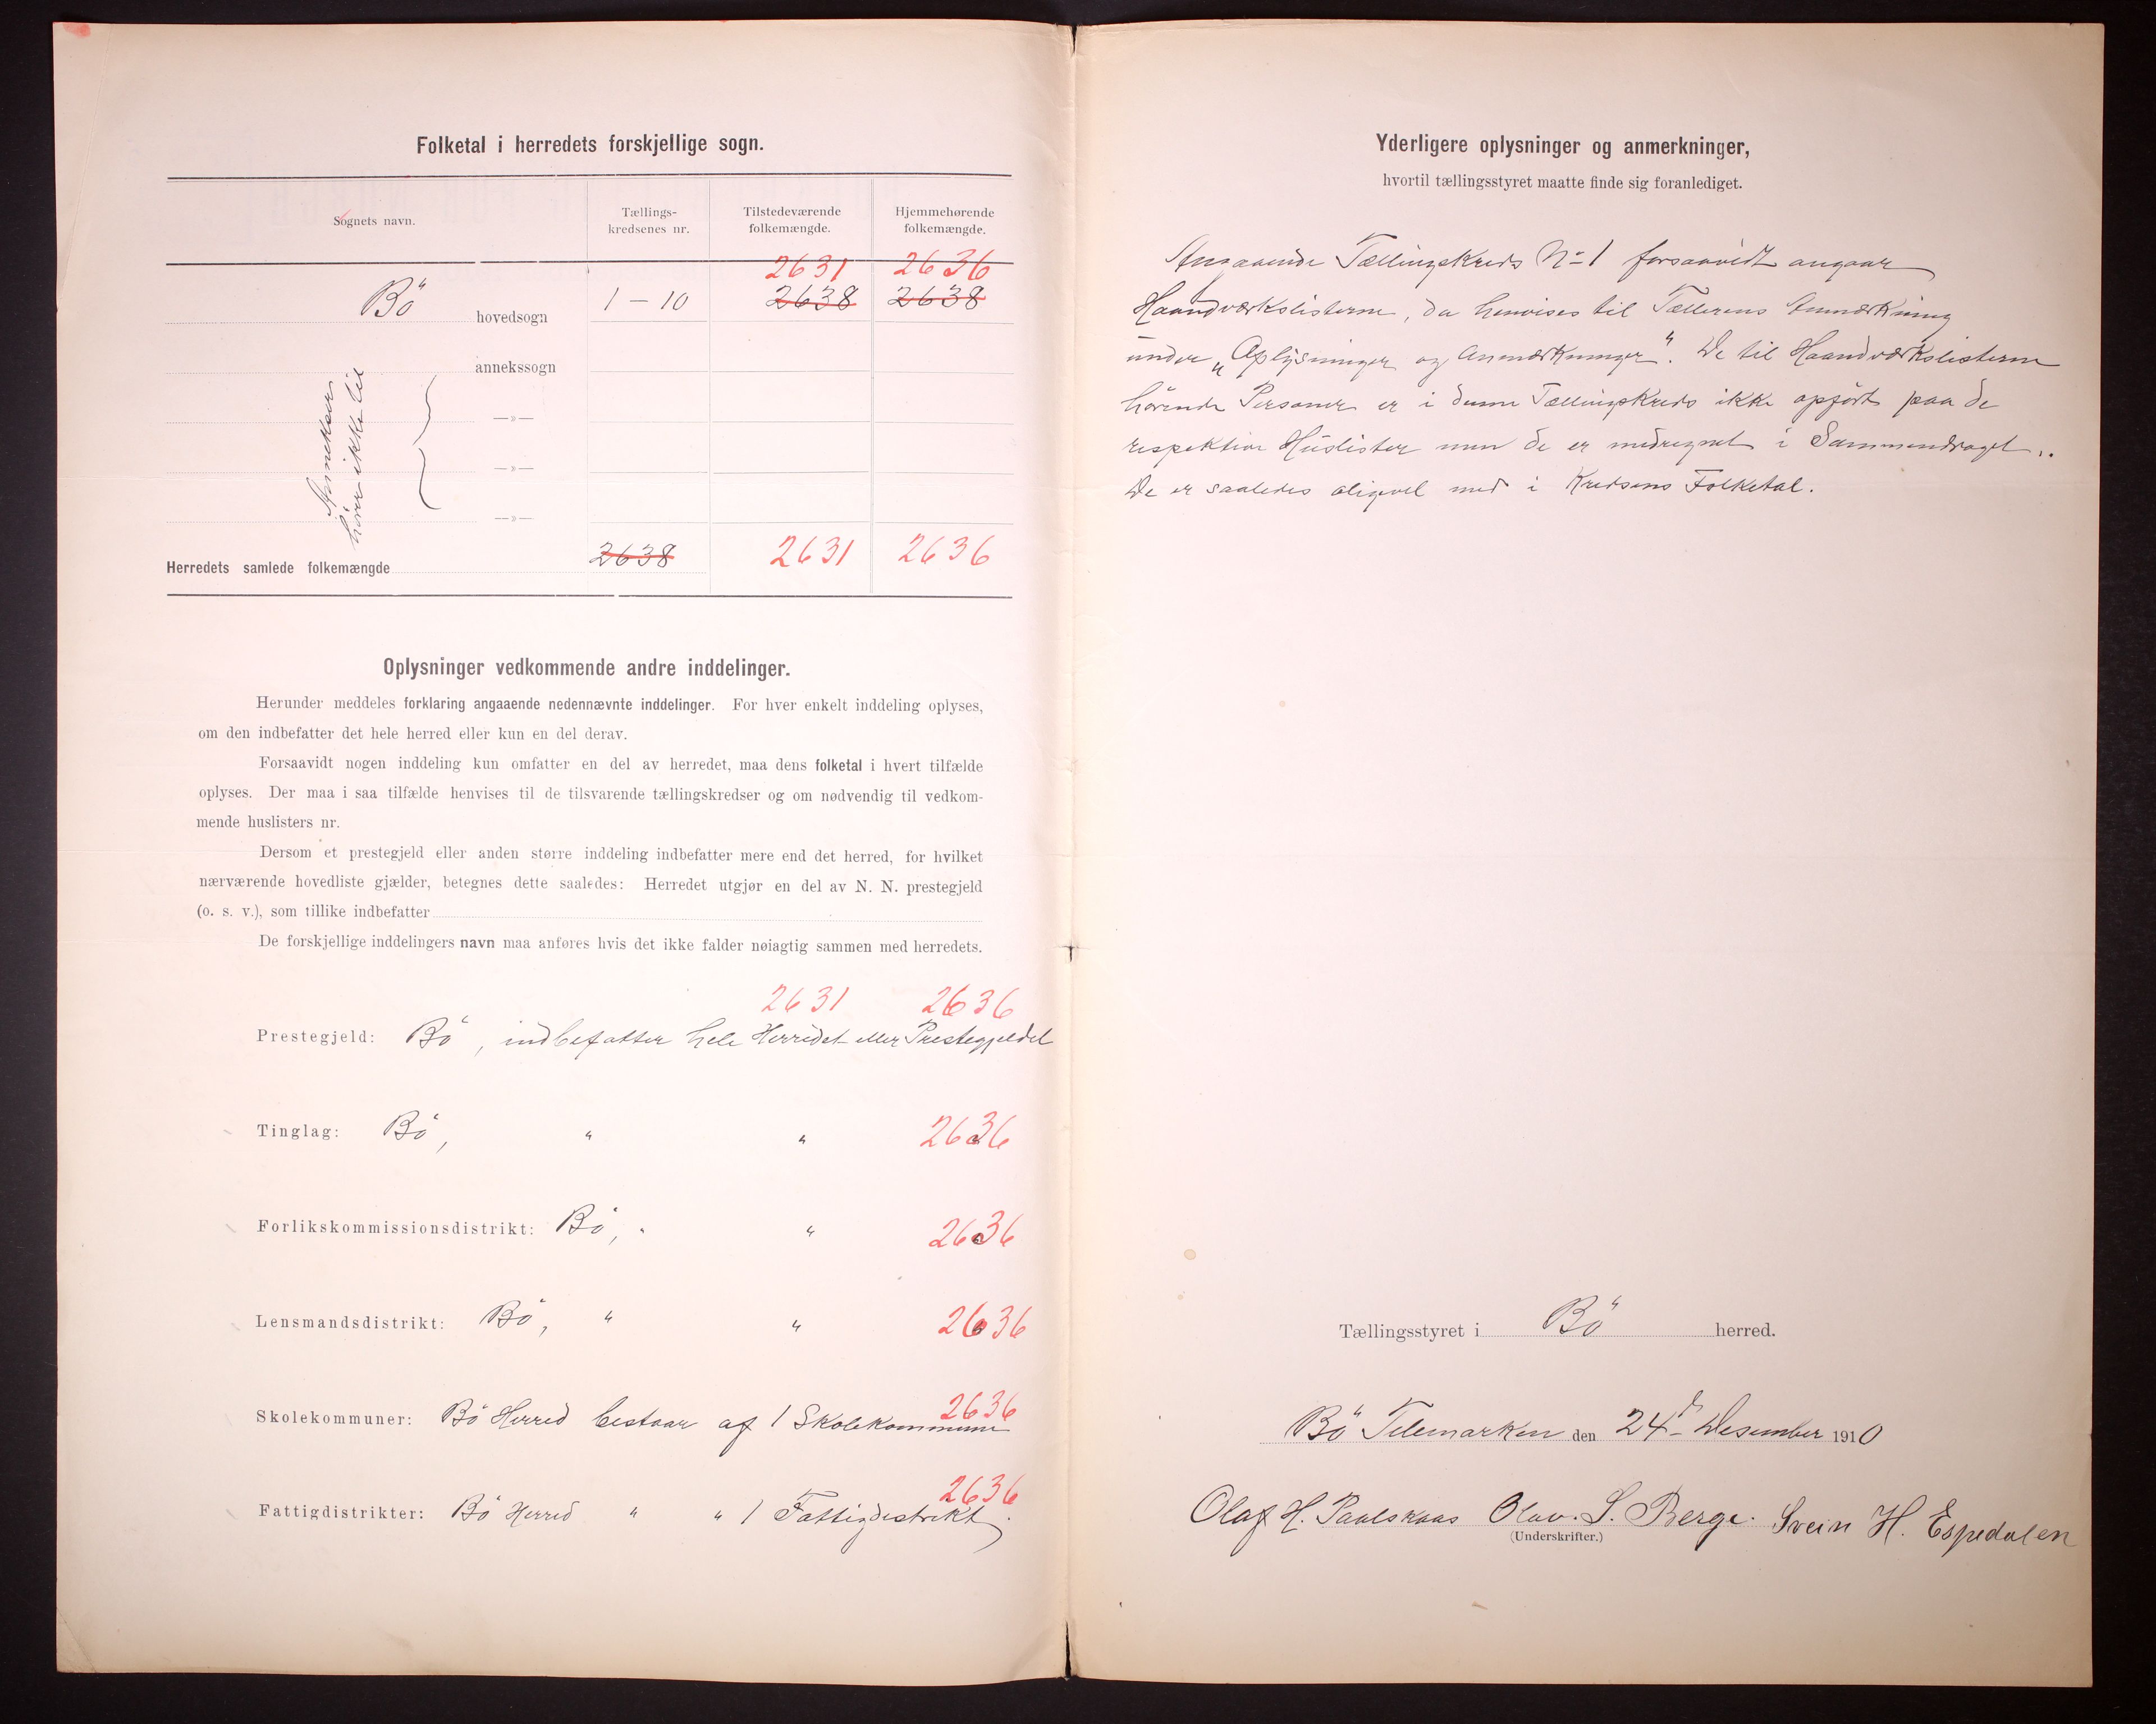 Folketal i herredets forskjellige sogn.
Sognets navn.
Tællings-
kredsenes nr.
Tilstedeværende
folkemængde.
Hjemmehørende
folkemængde.
2631 2636
Bö hovedsogn 1 – 10 2638 2638
annekssogn
—»—
—»—
—»—
hörer ikke til
Herredets samlede folkemængde 2638 2631 2636
Oplysninger vedkommende andre inddelinger.
Herunder meddeles forklaring angaaende nedennævnte inddelinger. For hver enkelt inddeling oplyses,
om den indbefatter det hele herred eller kun en del derav.
Forsaavidt nogen inddeling kun omfatter en del av herredet, maa dens folketal i hvert tilfælde
oplyses. Der maa i saa tilfælde henvises til de tilsvarende tællingskredser og om nødvendig til vedkom-
mende huslisters nr.
Dersom et prestegjeld eller anden større inddeling indbefatter mere end det herred, for hvilket
nærværende hovedliste gjælder, betegnes dette saaledes: Herredet utgjør en del av N. N. prestegjeld
(o. s. v.), som tillike indbefatter
De forskjellige inddelingers navn maa anføres hvis det ikke falder nøiagtig sammen med herredets.
2631 2636
Prestegjeld: Bö, indbefatter hele Herredet eller Prestegjeldet
Tinglag: Bö, " " 2636
Forlikskommissionsdistrikt: Bö, " " 2636
Lensmandsdistrikt: Bö, " " 2636
2636
Skolekommuner: Bö Herred bestaar af 1 Skolekommune
2636
Fattigdistrikter: Bö Herred " " 1 Fattigdistrikt.
Yderligere oplysninger og anmerkninger,
hvortil tællingsstyret maatte finde sig foranlediget.
Angaaende Tællingskreds No 1 forsaavidt angaar
Haandværkslisterne, da henvises til Tællerens Anmærkning
under „Oplysninger og Anmærkninger". De til Haandværkslisterne
hörende Personer er i denne Tællingskreds ikke opfört paa de
respektive Huslister men de er medregnet i Sammendraget.
De er saaledes aligevel med i Kredsens Folketal.
Tællingsstyret i Bö herred.
Bö Telemarken den 24d Desember 1910
Olaf H. Paalskaas Olav. S. Berge. Svein H. Espedalen
(Underskrifter.)